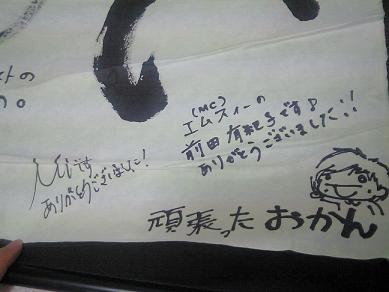 トの
(MC)
エムスィーの
前田有紀子です♪
ありがとうございました!!
です
ありがとうございました!
頑張ったおかん